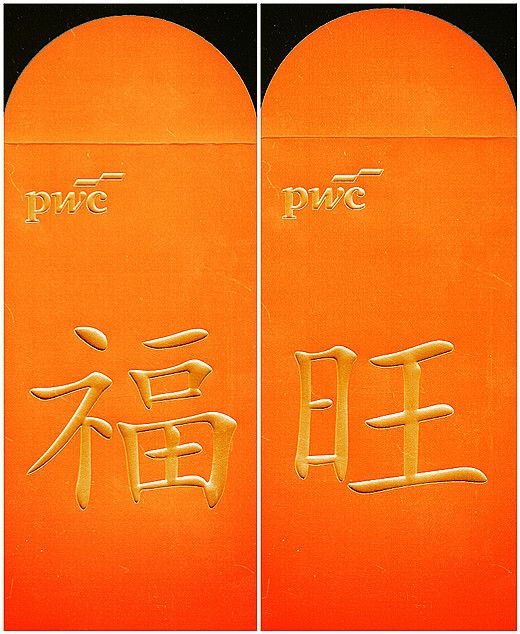 pwc
福
pwc
旺